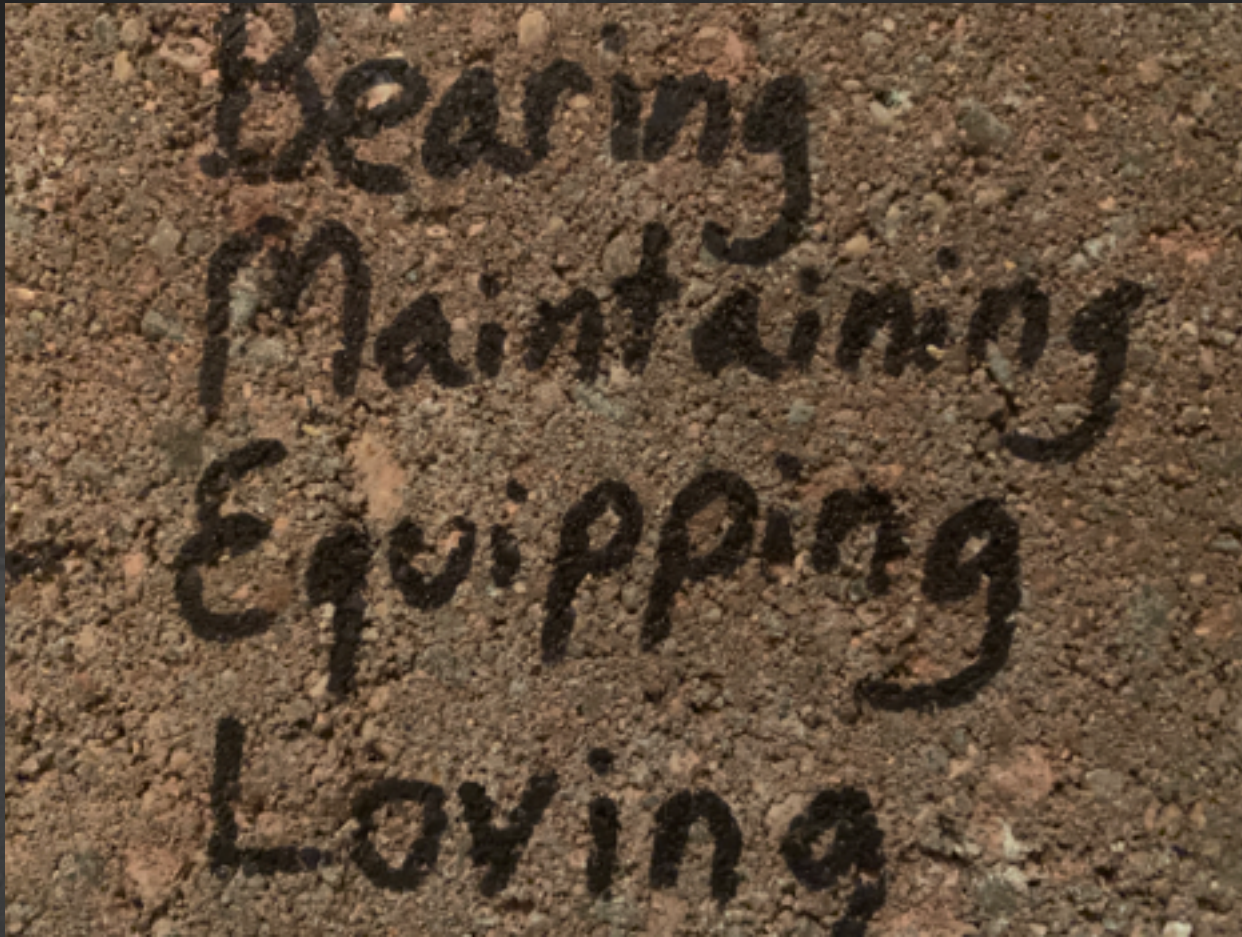 Bearing
Maintaining
Equipping
Loving